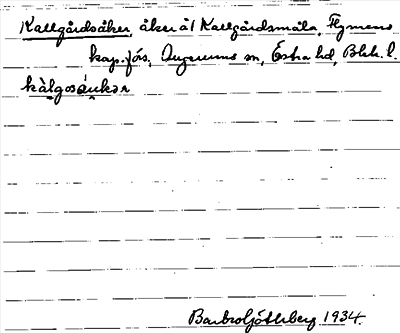 Kallgårdsåker, åker å1 Kallgårdsmåla, Flymens
kap.förs., Augerums sn, Östra hd, Blek. l.
kàlgosáukər
Barbro Göthberg 1934.